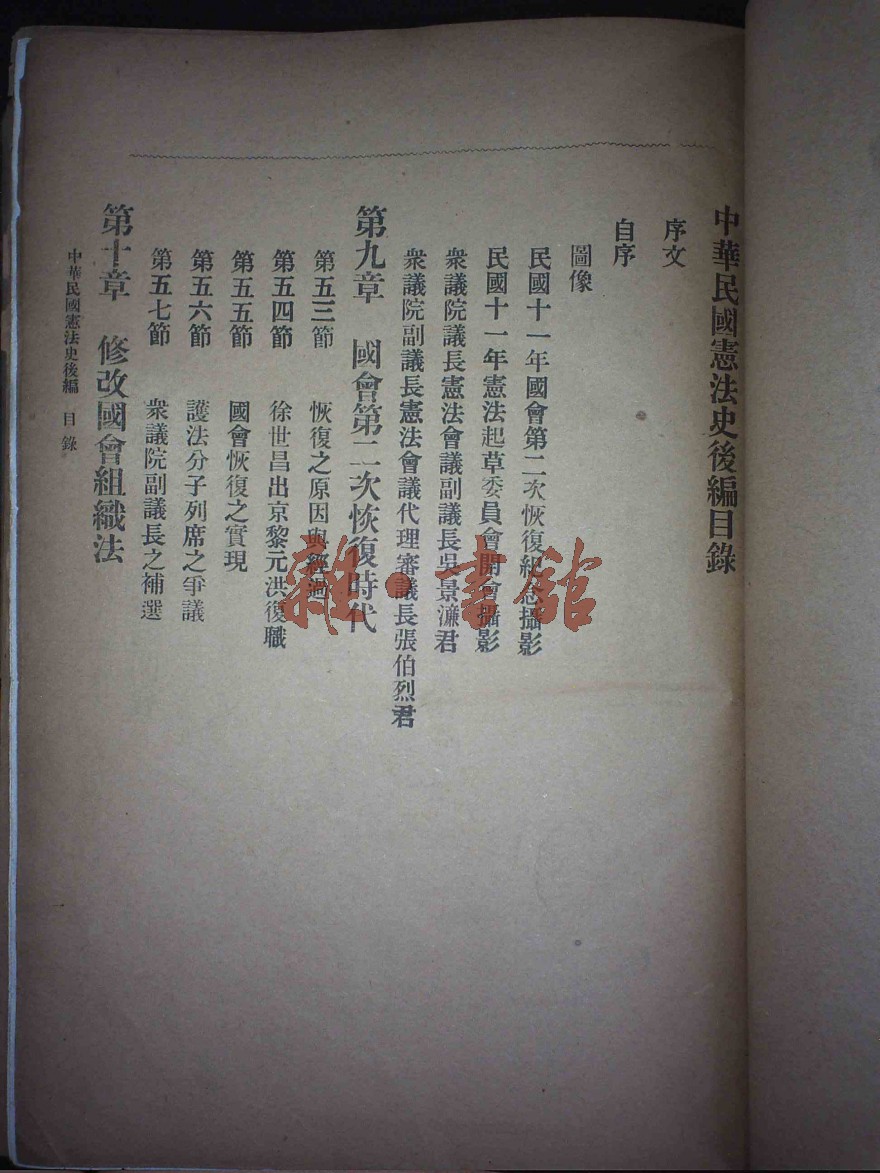 中華民國憲法史後編目錄
序文
自序
圖像
民國十一年國會第二次恢復紀念攝影
民國十一年憲法起草委員會開會攝影
衆議院議長憲法會議副議長吳景濂君
衆議院副議長憲法會議代理審議長張伯烈君
第九章 國會第二次恢復時代
第五三節 恢復之原因與經過
第五四節 徐世昌出京黎元洪復職
第五五節 國會恢復之實現
第五六節 護法分子列席之爭議
第五七節 衆議院副議長之補選
第十章 修改國會組織法
中華民國憲法史後編 目錄
雜·書館